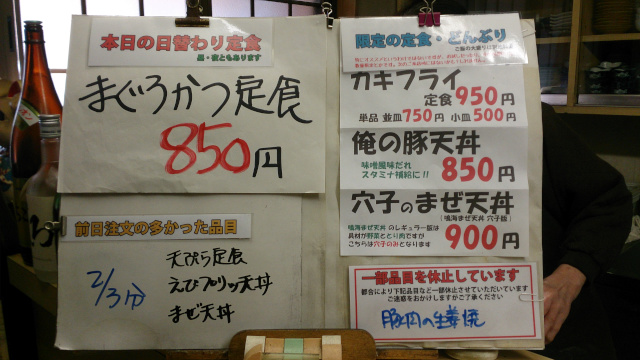 本日の日替わり定食
昼・夜ともあります
まぐろかつ定食
850円
前日注文の多かった品目
2/3分
天ぷら定食
えびプリッツ天丼
まぜ天丼
限定の定食・どんぶり
カキフライ
定食 950円
単品 並皿 750円 小皿 500円
俺の豚天丼
味噌風味だれ
スタミナ補給に!!
850円
穴子のまぜ天丼
(鳴海まぜ天丼 穴子版)
鳴海まぜ天丼 のレギュラー版は
具材が野菜ととり肉ですが
こちらは穴子のみとなります
900円
一部品目を休止しています
都合により下記品目など一部休止させていただいています
ご迷惑をおかけしますがご了承ください
豚肉の生姜焼